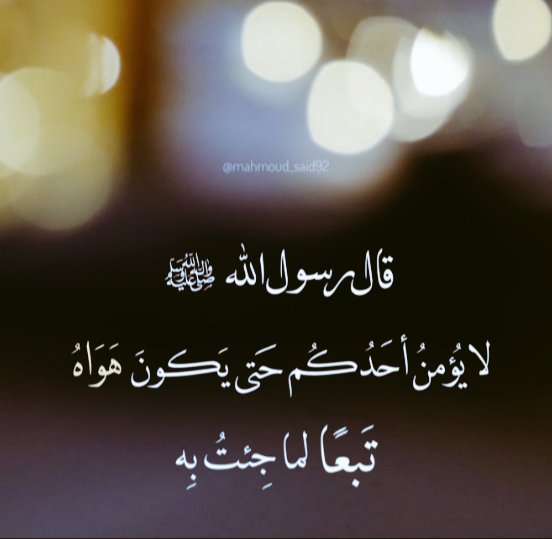 @mahmoud_said92
قال رسول الله ﷺ
لا يُؤمنُ أحَدُكُم حَتى يَكونَ هَوَاهُ
تَبعًا لما جِئتُ بِه